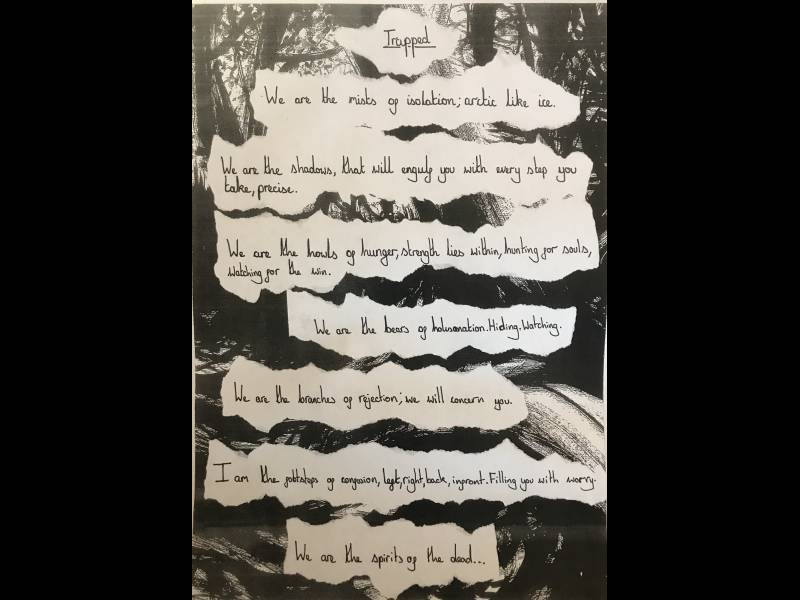 Trapped
We are the mists of isolation; arctic like ice.
We are the shadows, that will engulf you with every step you
take, precise.
We are the howls of hunger, strength lies within, hunting for souls,
Watching for the win.
We are the bears of holusonation. Hiding. Watching.
We are the branches of rejection; we will concern you.
I am the footsteps of confusion, left, right, back, infront. Filling you with worry.
We are the spirits of the dead...